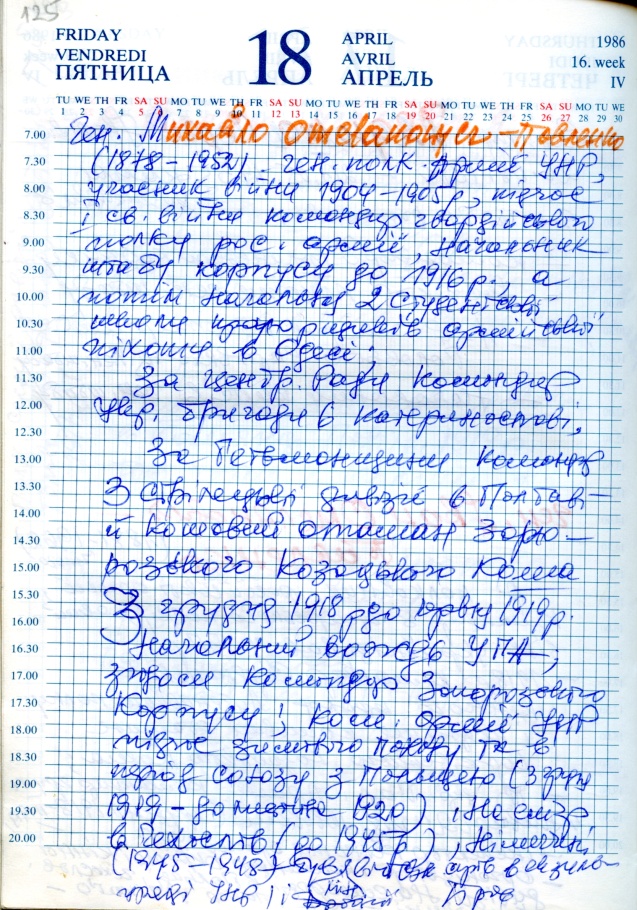 125
FRIDAY
VENDREDI
ПЯТНИЦА
18
APRIL
AVRIL
АПРЕЛЬ
1986
16. week
IV
TU WE TH FR SA SU MO TU WE TH FR SA SU MO TU WE TH FR SA SU MO TU WE TH FR SA SU MO TU WE
1 2 3 4 5 6 7 8 9 10 11 12 13 14 15 16 17 18 19 20 21 22 23 24 25 26 27 28 29 30
7.00 Ген. Михайло Омелянович-Павленко
7.30 (1878-1952) ген. полк. Армії УНР,
8.00 учасник війни 1904-1905р, підчас
8.30 І св. війни командир гвардійського
9.00 полку рос. армії, начальник
9.30 штабу корпусу до 1916 р., а
10.00 потім начальник 2 студентської
10.30 школи прапорщиків армійської
11.00 піхоти в Одесі.
11.30 За Центр. Ради командир
12.00 укр. бригади в Катеринославі,
12.30
13.00 За Гетьманщини командир
13.30 3 стрілецької дивізії в Полтаві
14.00 й кошовий отаман Запо-
14.30
15.00 розького Козацького Коша
15.30 З грудня 1918 р до червня 1919 р.
16.00
16.30 Начальний вождь УГА;
17.00 згодом командир Запорозького
17.30 Корпусу; ком. армії УНР
18.00 підчас зимового походу та в
18.30
19.00 період союзу з Польщею (з груд
19.30 1919 - до листопа 1920), На еміґр
20.00 в Чехослов (до 1945р), Німеччині
(1945-1948) був військ справ в екзиль
уряді УНР і